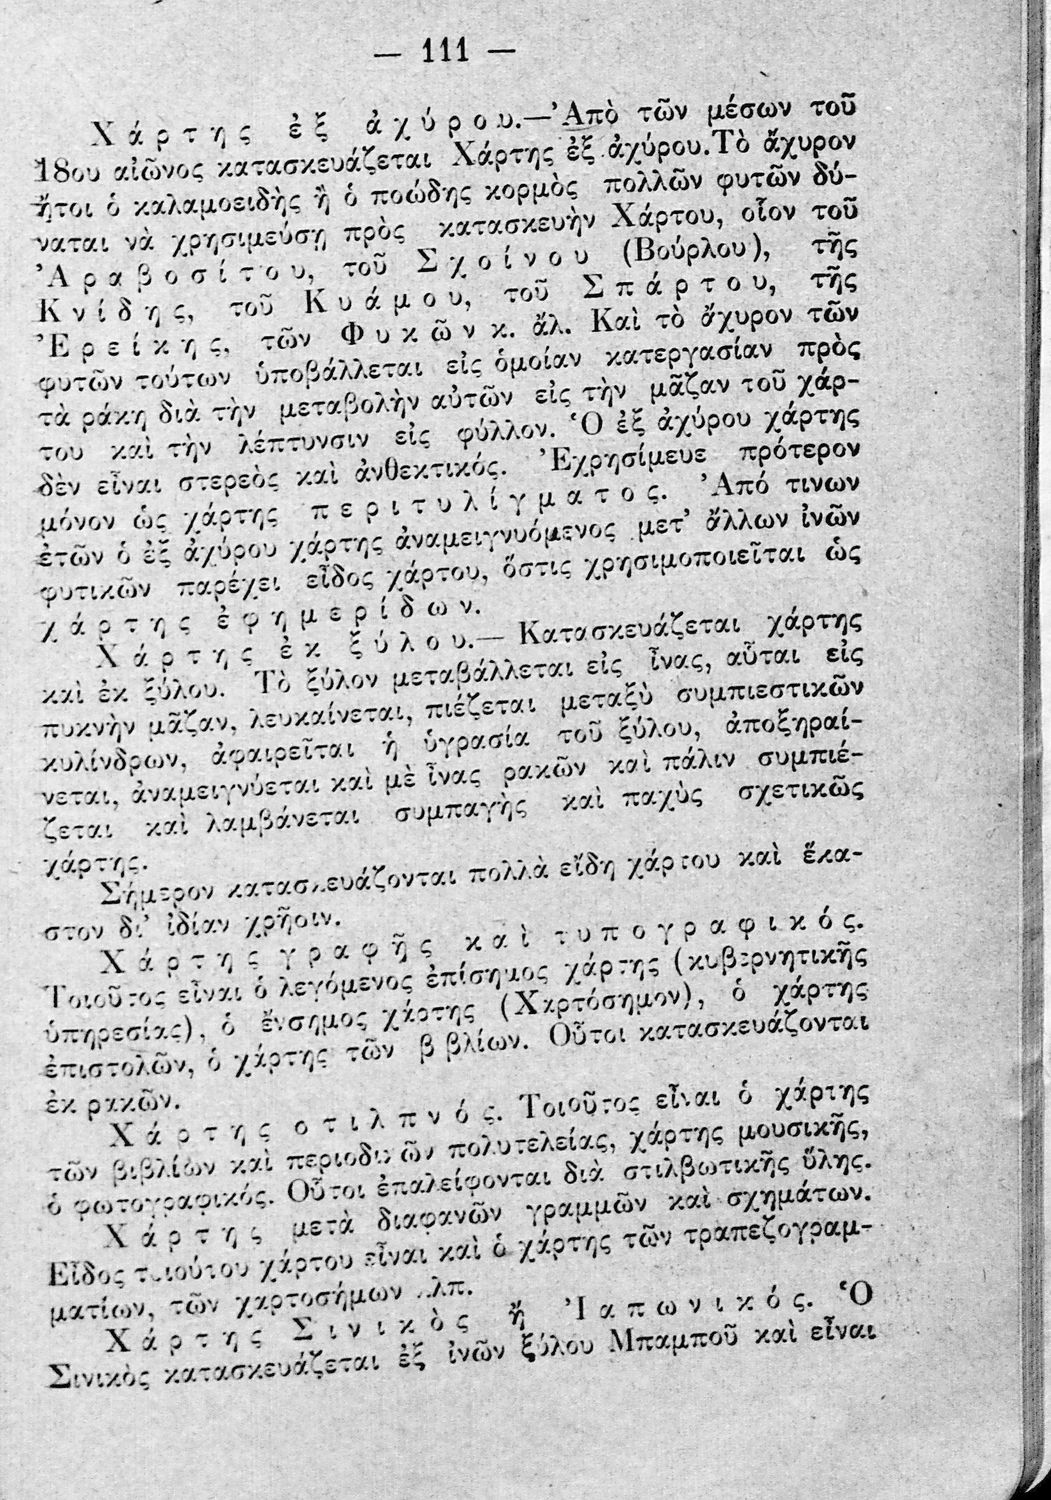 — 111 —
Χάρτης ἐξ ἀχύρου.—Ἀπὸ τῶν μέσων τοῦ
18ου αἰῶνος κατασκευάζεται Χάρτης ἐξ ἀχύρου. Τὸ ἄχυρον
ἤτοι ὁ καλαμοειδὴς ἢ ὁ ποώδης κορμὸς πολλῶν φυτῶν δύ-
ναται νὰ χρησιμεύσῃ πρὸς κατασκευὴν Χάρτου, οἷον τοῦ
Ἀραβοσίτου, τοῦ Σχοίνου (Βούρλου), τῆς
Κνίδης, τοῦ Κυάμου, τοῦ Σπάρτου, τῆς
Ἐρείκης, τῶν Φυκῶν κ. ἄλ. Καὶ τὸ ἄχυρον τῶν
φυτῶν τούτων ὑποβάλλεται εἰς ὁμοίαν κατεργασίαν πρὸς
τὰ ράκη διὰ τὴν μεταβολὴν αὐτῶν εἰς τὴν μᾶζαν τοῦ χάρ-
του καὶ τὴν λέπτυνσιν εἰς φύλλον. Ὁ ἐξ ἀχύρου χάρτης
δὲν εἶναι στερεὸς καὶ ἀνθεκτικός. Ἐχρησίμευε πρότερον
μόνον ὡς χάρτης περιτυλίγματος. Ἀπό τινων
ἐτῶν ὁ ἐξ ἀχύρου χάρτης ἀναμειγνυόμενος μετ’ ἄλλων ἰνῶν
φυτικῶν παρέχει εἶδος χάρτου, ὅστις χρησιμοποιεῖται ὡς
χάρτης ἐφημερίδων.
Χάρτης ἐκ ξύλου.— Κατασκευάζεται χάρτης
καὶ ἐκ ξύλου. Τὸ ξύλον μεταβάλλεται εἰς ἶνας, αὗται εἰς
πυκνὴν μᾶζαν, λευκαίνεται, πιέζεται μεταξὺ συμπιεστικῶν
κυλίνδρων, ἀφαιρεῖται ἡ ὑγρασία τοῦ ξύλου, ἀποξηραί-
νεται, ἀναμειγνύεται καὶ μὲ ἶνας ρακῶν καὶ πάλιν συμπιέ-
ζεται καὶ λαμβάνεται συμπαγὴς καὶ παχὺς σχετικῶς
χάρτης.
Σήμερον κατασκευάζονται πολλὰ εἴδη χάρτου καὶ ἕκα-
στον δι’ ἰδίαν χρῆοιν.
Χάρτης γραφῆς καὶ τυπογραφικός.
Τοιοῦτος εἶναι ὁ λεγόμενος ἐπίσημος χάρτης (κυβερνητικῆς
ὑπηρεσίας), ὁ ἔνσημος χάρτης (Χαρτόσημον), ὁ χάρτης
ἐπιστολῶν, ὁ χάρτης τῶν β βλίων. Οὗτοι κατασκευάζονται
ἐκ ρακῶν.
Χάρτης οτιλπνός. Τοιοῦτος εἶναι ὁ χάρτης
τῶν βιβλίων καὶ περιοδικῶν πολυτελείας, χάρτης μουσικῆς,
ὁ φωτογραφικός. Οὗτοι ἐπαλείφονται διὰ στιλβωτικῆς ὕλης.
Χάρτης μετὰ διαφανῶν γραμμῶν καὶ σχημάτων.
Εἶδος τοιούτου χάρτου εἶναι καὶ ὁ χάρτης τῶν τραπεζογραμ-
ματίων, τῶν χαρτοσήμων κλπ.
Χάρτης Σινικὸς ἢ Ἰαπωνικός. Ὁ
Σινικὸς κατασκευάζεται ἐξ ἰνῶν ξύλου Μπαμποῦ καὶ εἶναι